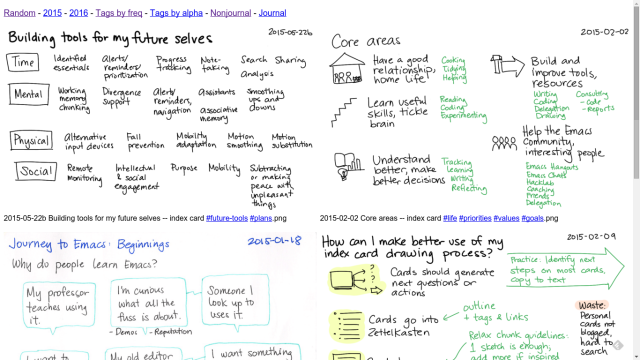 Random - 2015 - 2016 - Tags by freq - Tags by alpha - Nonjournal - Journal
Building tools for my future selves 2015-05-22b
Time
Identified essentials
Alerts/ reminders/ prioritization
Progress tracking
Note-taking
Search
Sharing
analysis
Mental
Working memory chunking
Divergence support
Alerts/ reminders, navigation
Assistants
associative memory
Smoothing ups and downs
Physical
Alternative input devices
Fall prevention
Mobility adaptation
Motion smoothing
Motion substitution
Social
Remote monitoring
Intellectual & social engagement
Purpose
Mobility
Subtracting or making peace with unpleasant things
2015-05-22b Building tools for my future selves -- index card #future-tools #plans.png
Core areas 2015-02-02
Have a good relationship, home life
Cooking
Tidying
Helping
Learn useful skills, tickle brain
Reading
Coding
Experimenting
Understand better, make better decisions
Tracking
Learning
Writing
Reflecting
Build and improve tools, resources
Writing
Coding
Delegation
Drawing
Consulting
- Code
- Reports
Help the Emacs Community, interesting people
Emacs Hangouts
Emacs Chats
HackLab
Coaching
Friends
Delegation
2015-02-02 Core areas -- index card #life #priorities #values #goals.png
Journey to Emacs: Beginnings 2015-01-18
Why do people learn Emacs?
My professor teaches using it.
I'm curious what all the fuss is about.
- Demos
- Reputation
Someone I look up to uses it.
I want to
My old editor
I want something
How can I make better use of my index card drawing process? 2015-02-09
Cards should generate next questions or actions
Practice: Identify next steps on most cards, copy to text
Cards go into Zettelkasten
outline
+ tags & links
Waste:
Personal cards not blogged, hard to search
Relax chunk guidelines:
1 sketch is enough,
add more if inspired